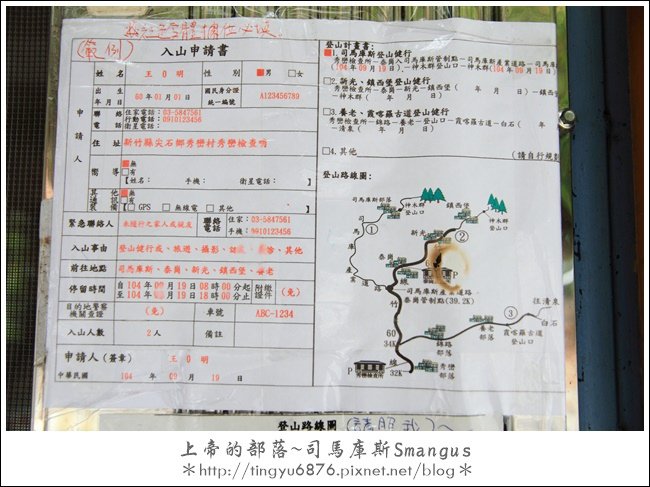 (範例)
入山申請書
姓名 王○明 性別 ■男 □女
出生年月日 60年01月01日 國民身分證統一編號 A123456789
申請人
聯絡電話 住家電話:03-5847561
行動電話:0910123456
衛星電話:
住址 新竹縣尖石鄉秀巒村秀巒檢查哨
嚮導 ■無
□有
【姓名: 手機: 衛星電話: 】
其他通訊裝備 ■無
□有
□GPS □無線電 □其他
緊急聯絡人 未隨行之家人或親友 聯絡電話 住家:03-5847561
手機:0910123456
入山事由 登山健行或、旅遊、攝影、 、其他
前往地點 司馬庫斯、泰崗、新光、鎮西堡、養老
停留時間 自104年 月19日08時00分起
至104年 月19日18時00分止 附繳證件 (免)
目的地警察機關查證 (免) 車號 ABC-1234
入山人數 2人 備註
申請人(簽章) 王○明
中華民國 104 年 09 月 19 日
登山計畫書:
■1.司馬庫斯登山健行
秀巒檢查所-泰崗入司馬庫斯管制點-司馬庫斯產業道路-司馬庫斯
(104年09月19日)-神木群登山口-(104年09月19日)
□2.新光、鎮西堡登山健行
秀巒檢查所-泰崗-新光-鎮西堡( 年 月 日)-鎮西堡
-神木群( 年 月 日)
□3.養老、霞喀羅古道登山健行
秀巒檢查所-錦路-養老-登山口-霞喀羅古道-白石( 年
-清泉( 年 月 日)
□4.其他 (請自行規劃
登山路線圖:
司馬庫斯部落
神木群登山口
鎮西堡
神木群登山口
①
②
新光
泰崗
司馬庫斯產業道路
P
司馬庫斯產業道路
泰崗管制點(39.2K)
竹
60
34K
線
32K
③
往清泉
白石
養老部落
霞喀羅古道登山口
錦路部落
秀巒部落
P
秀巒檢查所
登山路線圖
上帝的部落~司馬庫斯Smangus
*http://tingyu6876.pixnet.net/blog*